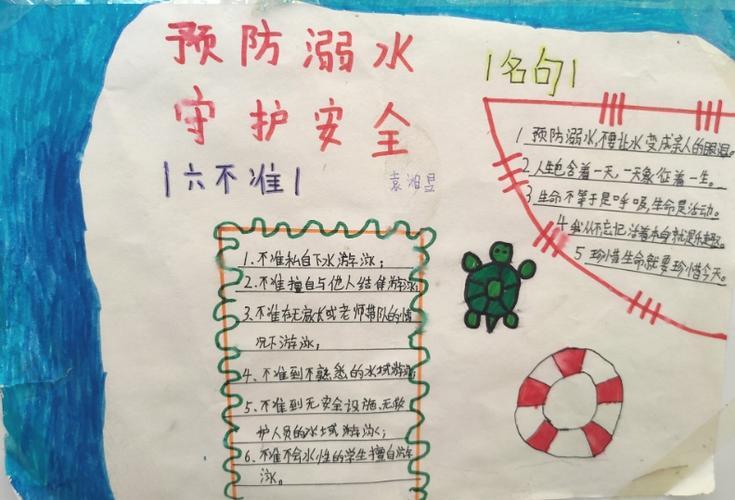 预防溺水
守护安全
六不准
袁湘昱
1. 不准私自下水游泳;
2. 不准擅自与他人结伴游泳
3. 不准在无家长或老师带队的情
况下游泳;
4、不准到不熟悉的水域游泳
5、不准到无安全设施、无救
护人员的水域游泳;
6、不准不会水性的学生擅自游
泳。
名句
1 预防溺水,不要让水变成亲人的眼泪。
2 人生包含着一天,一天象征着一生。
3 生命不等于是呼吸,生命是活动。
4 我从不忘记,活着本身就是乐趣。
5 珍惜生命就要珍惜今天。